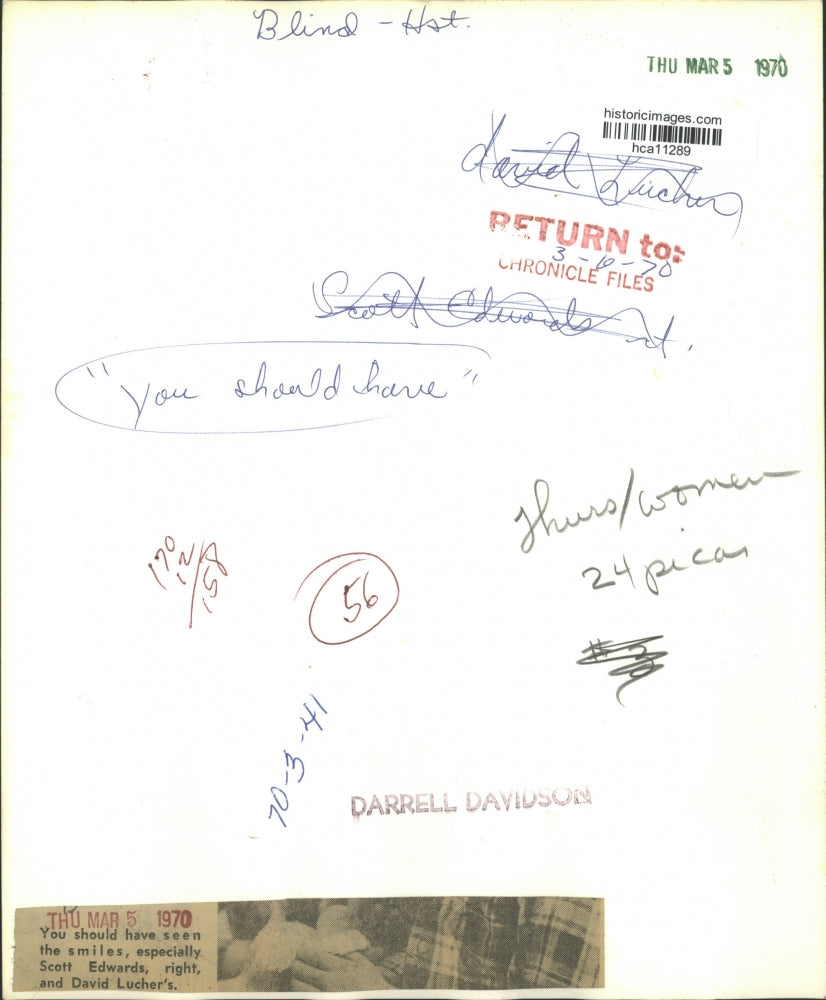 Blind - Hst.
THU MAR 5 1970
historicimages.com
hca11289
David Lucher
RETURN to:
3-10-70
CHRONICLE FILES
Scott Edwards rt.
"you should have"
Thurs/women
24 picas
170
12/
158
56
70-3-41
DARRELL DAVIDSON
THU MAR 5 1970
You should have seen
the smiles, especially
Scott Edwards, right,
and David Lucher's.